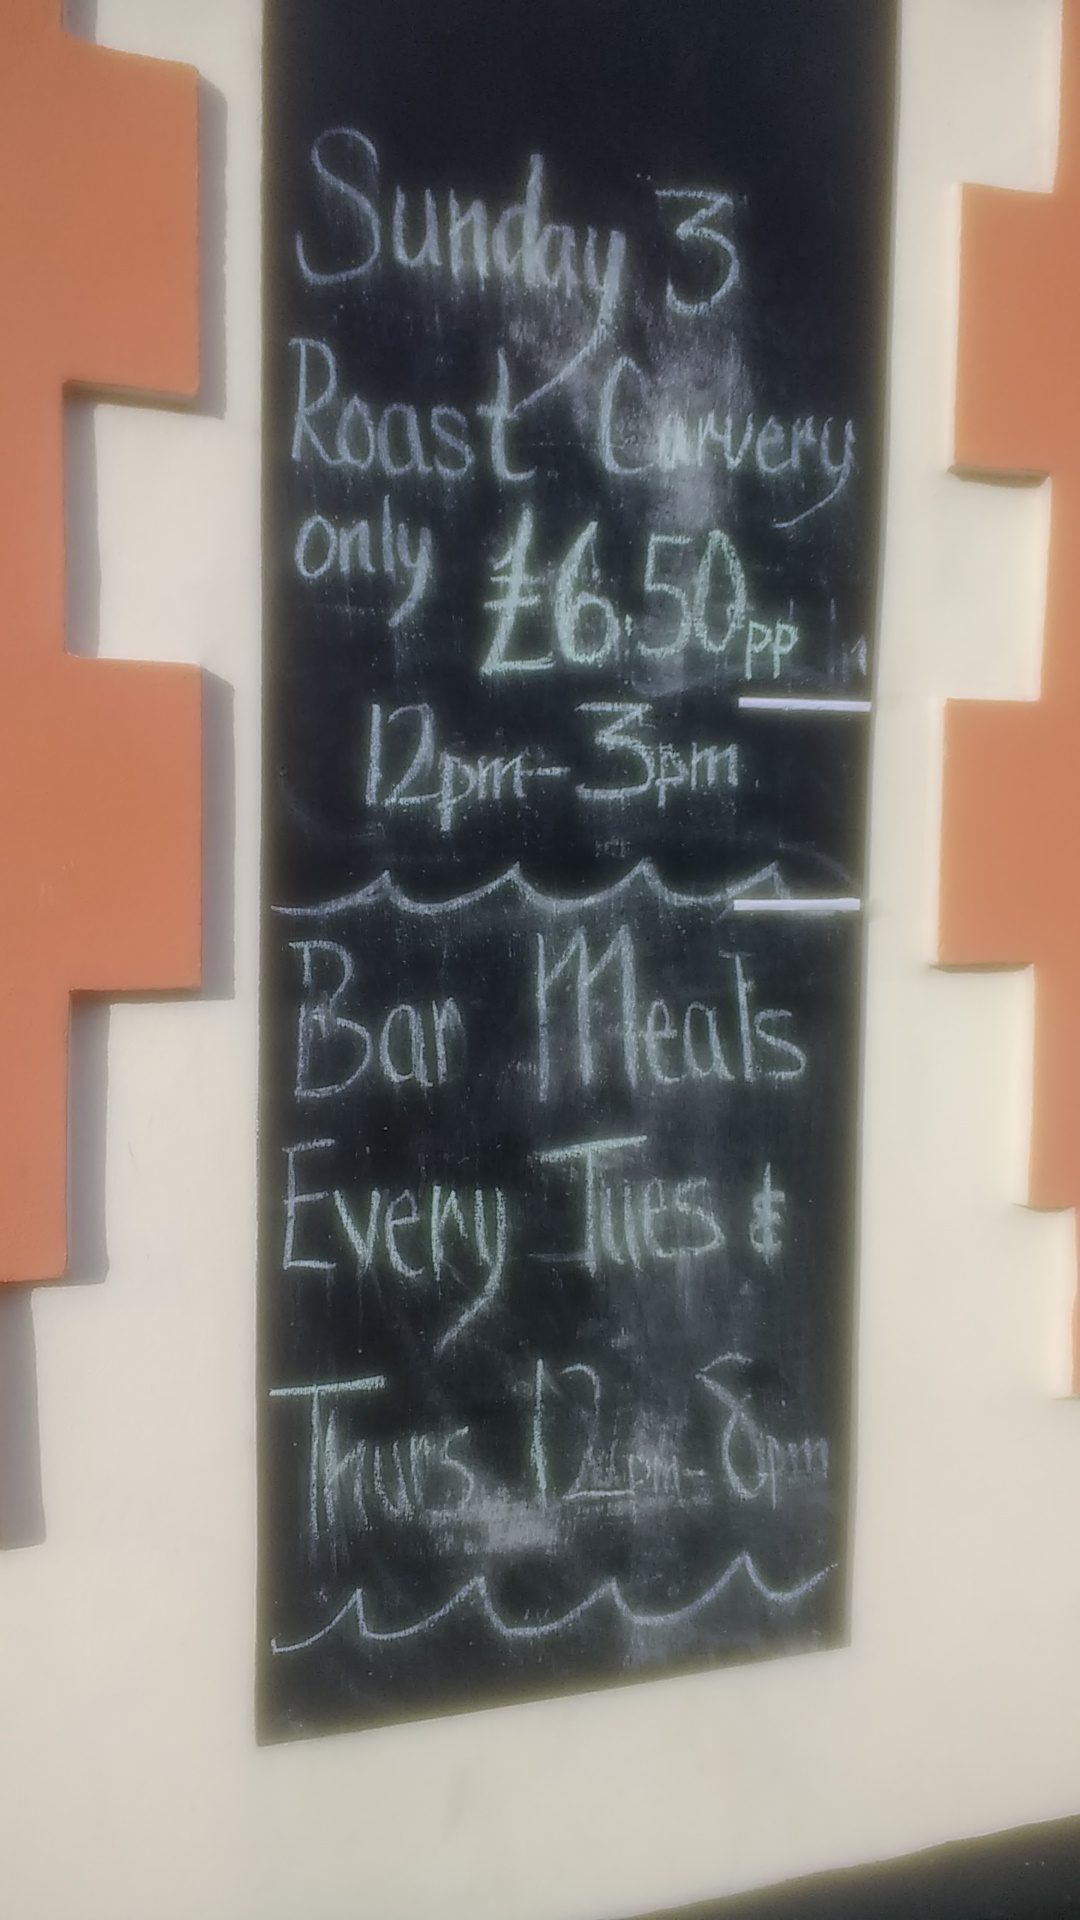 Sunday 3
Roast Carvery
only £6.50pp
12pm-3pm
Bar Meals
Every Tues &
Thurs 12pm-8pm